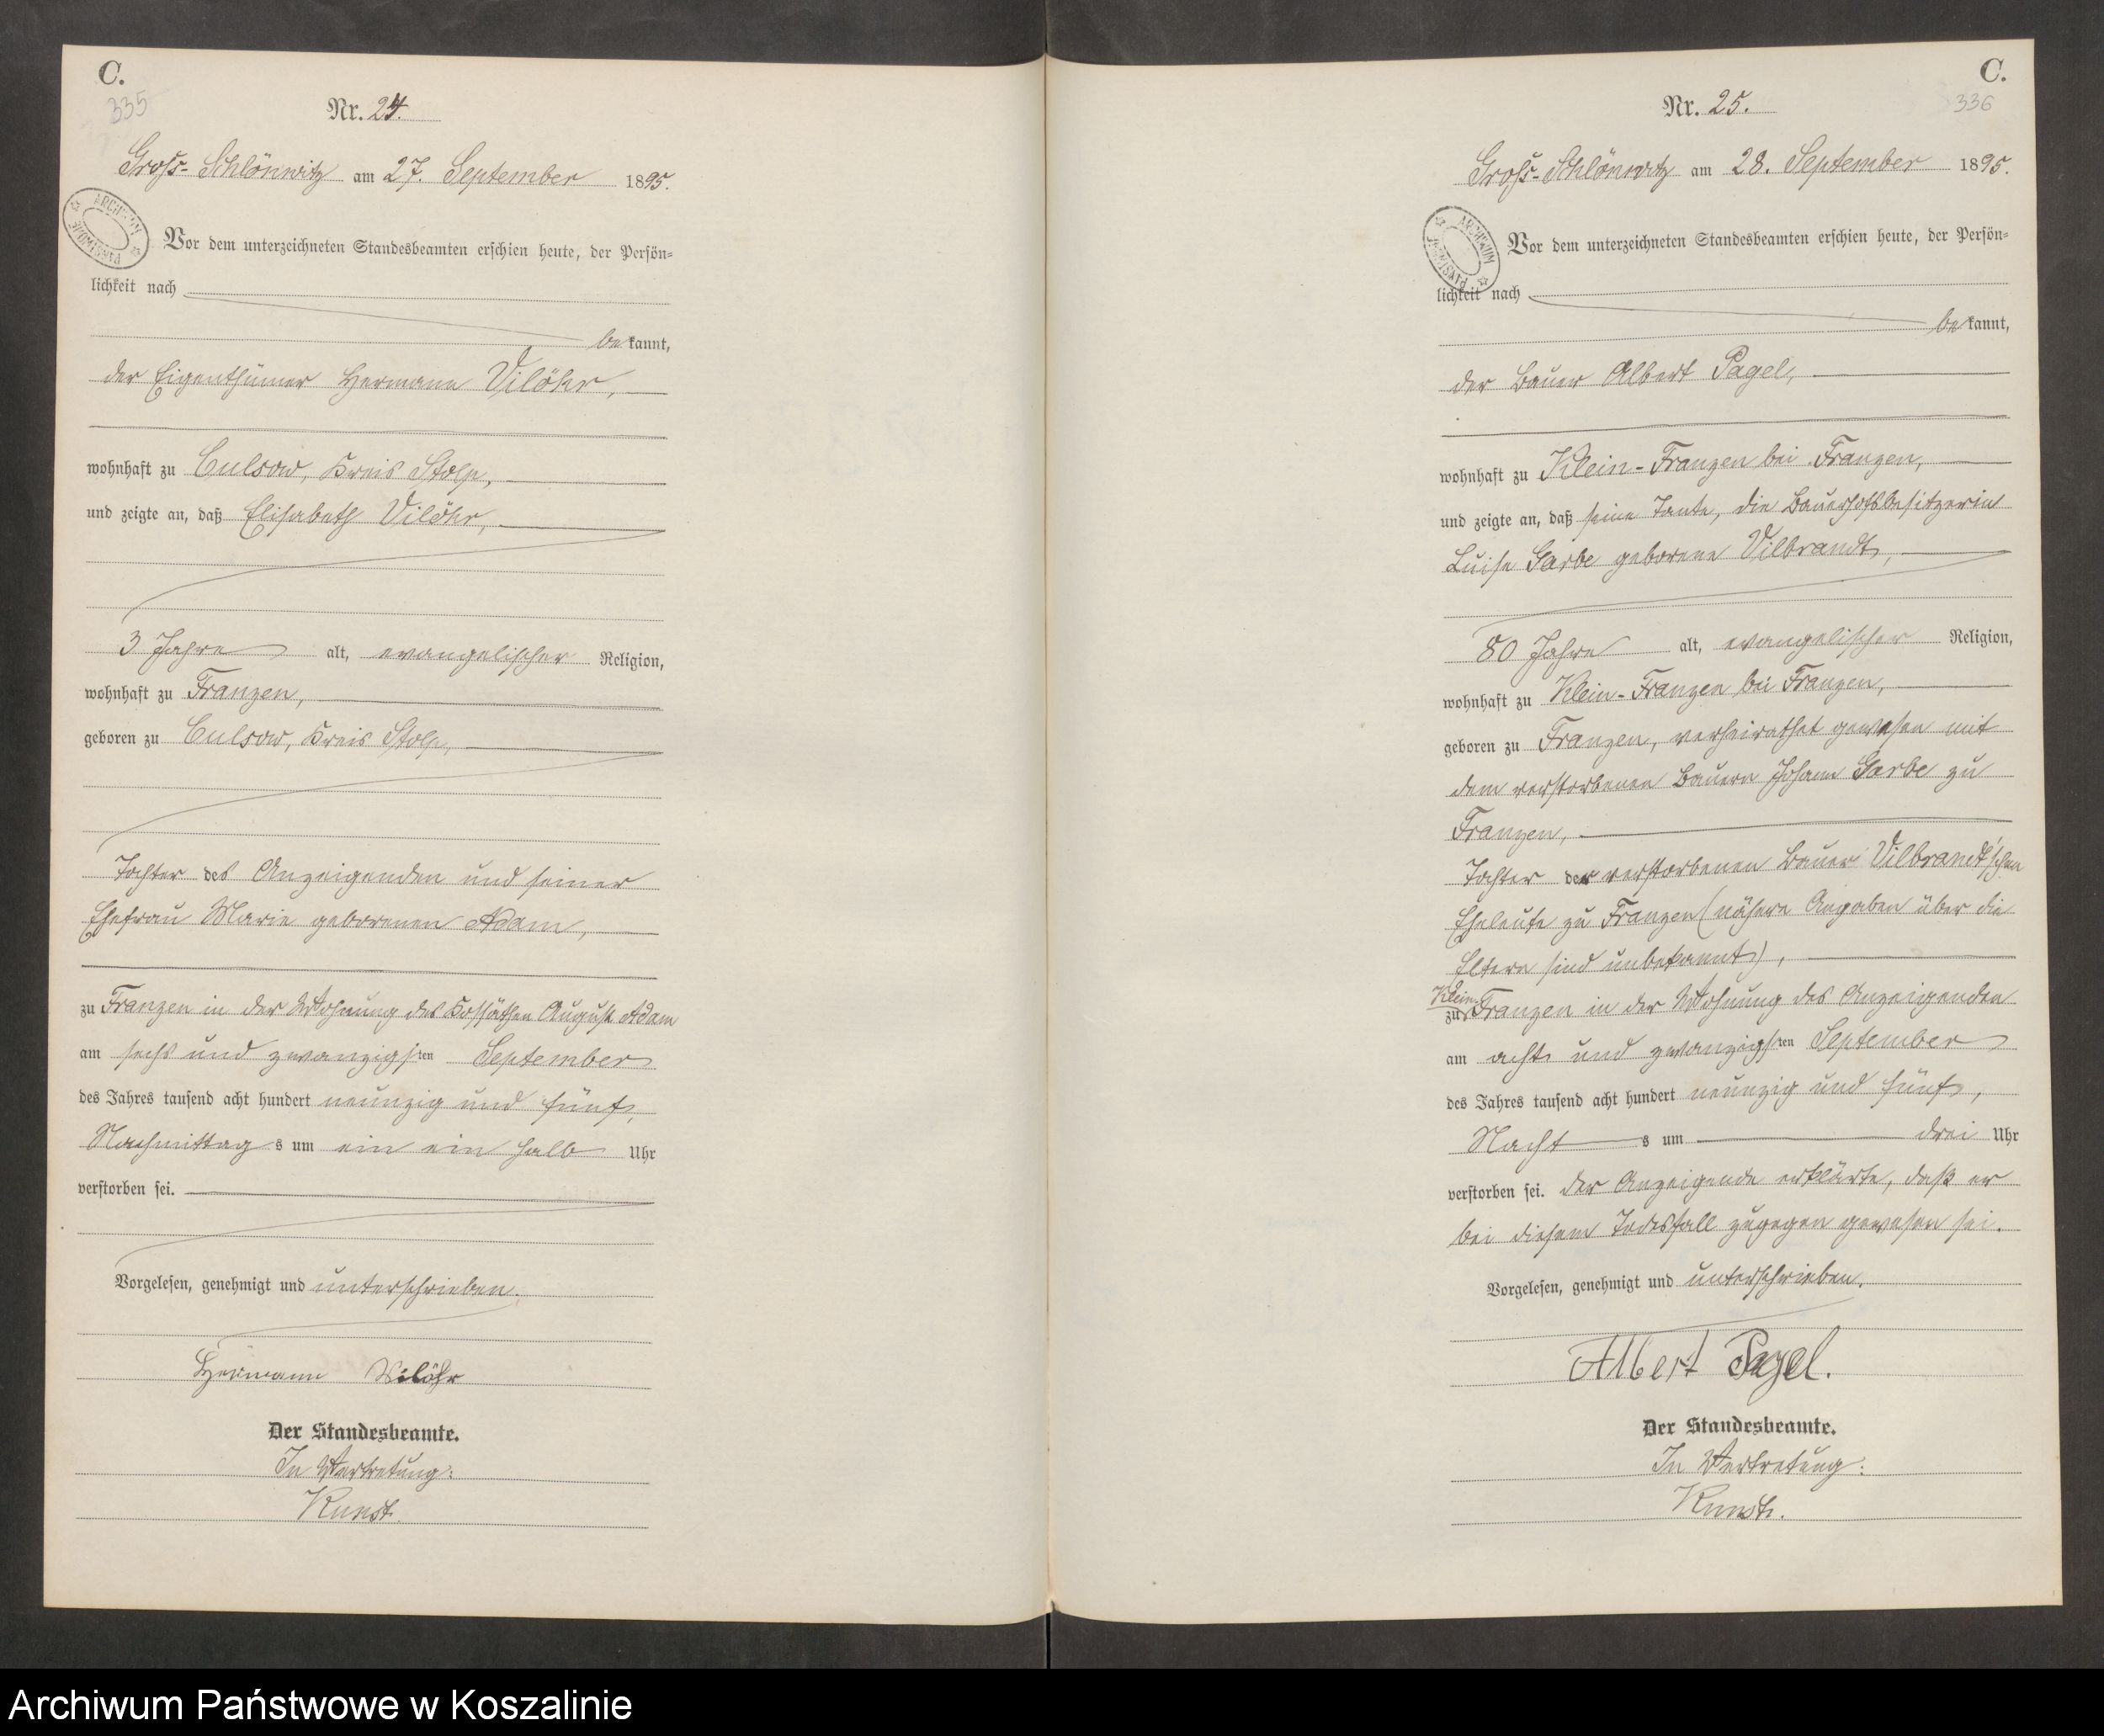 C.
335
Nr. 24.
Groß-Schlönwitz am 27. September 1895.
ARCHIWUM PAŃSTWOWE
Vor dem unterzeichneten Standesbeamten erschien heute, der Persön-
lichkeit nach
bekannt,
der Eigenthümer Hermann Vilöhr,
wohnhaft zu Culsow, Kreis Stolp,
und zeigte an, daß Elisabeth Vilöhr,
3 Jahre alt, evangelischer Religion,
wohnhaft zu Franzen,
geboren zu Culsow, Kreis Stolp,
Tochter des Anzeigenden und seiner
Ehefrau Marie geborenen Adam,
zu Franzen in der Wohnung des Kossäthen August Adam
am sechs und zwanzigsten September
des Jahres tausend acht hundert neunzig und fünf,
Nachmittags um ein ein halb Uhr
verstorben sei.
Vorgelesen, genehmigt und unterschrieben.
Hermann Vilöhr
Der Standesbeamte.
In Vertretung:
Kunst.
C.
336
Nr. 25.
Groß-Schlönwitz am 28. September 1895.
ARCHIWUM PAŃSTWOWE
Vor dem unterzeichneten Standesbeamten erschien heute, der Persön-
lichkeit nach
bekannt,
der Bauer Albert Pagel,
wohnhaft zu Klein-Franzen bei Franzen,
und zeigte an, daß seine Tante, die Bauerhofsbesitzerin
Luise Garbe geborene Vilbrandt,
80 Jahre alt, evangelischer Religion,
wohnhaft zu Klein-Franzen bei Franzen,
geboren zu Franzen, verheirathet gewesen mit
dem verstorbenen Bauern Johann Garbe zu
Franzen,
Tochter der verstorbenen Bauer Vilbrandt'schen
Eheleute zu Franzen (nähere Angaben über die
Eltern sind unbekannt),
Klein-
zu Franzen in der Wohnung des Anzeigenden
am acht und zwanzigsten September
des Jahres tausend acht hundert neunzig und fünf,
Nachts um drei Uhr
verstorben sei. Der Anzeigende erklärte, daß er
bei diesem Todesfall zugegen gewesen sei.
Vorgelesen, genehmigt und unterschrieben.
Albert Pagel.
Der Standesbeamte.
In Vertretung:
Kunst.
Archiwum Państwowe w Koszalinie